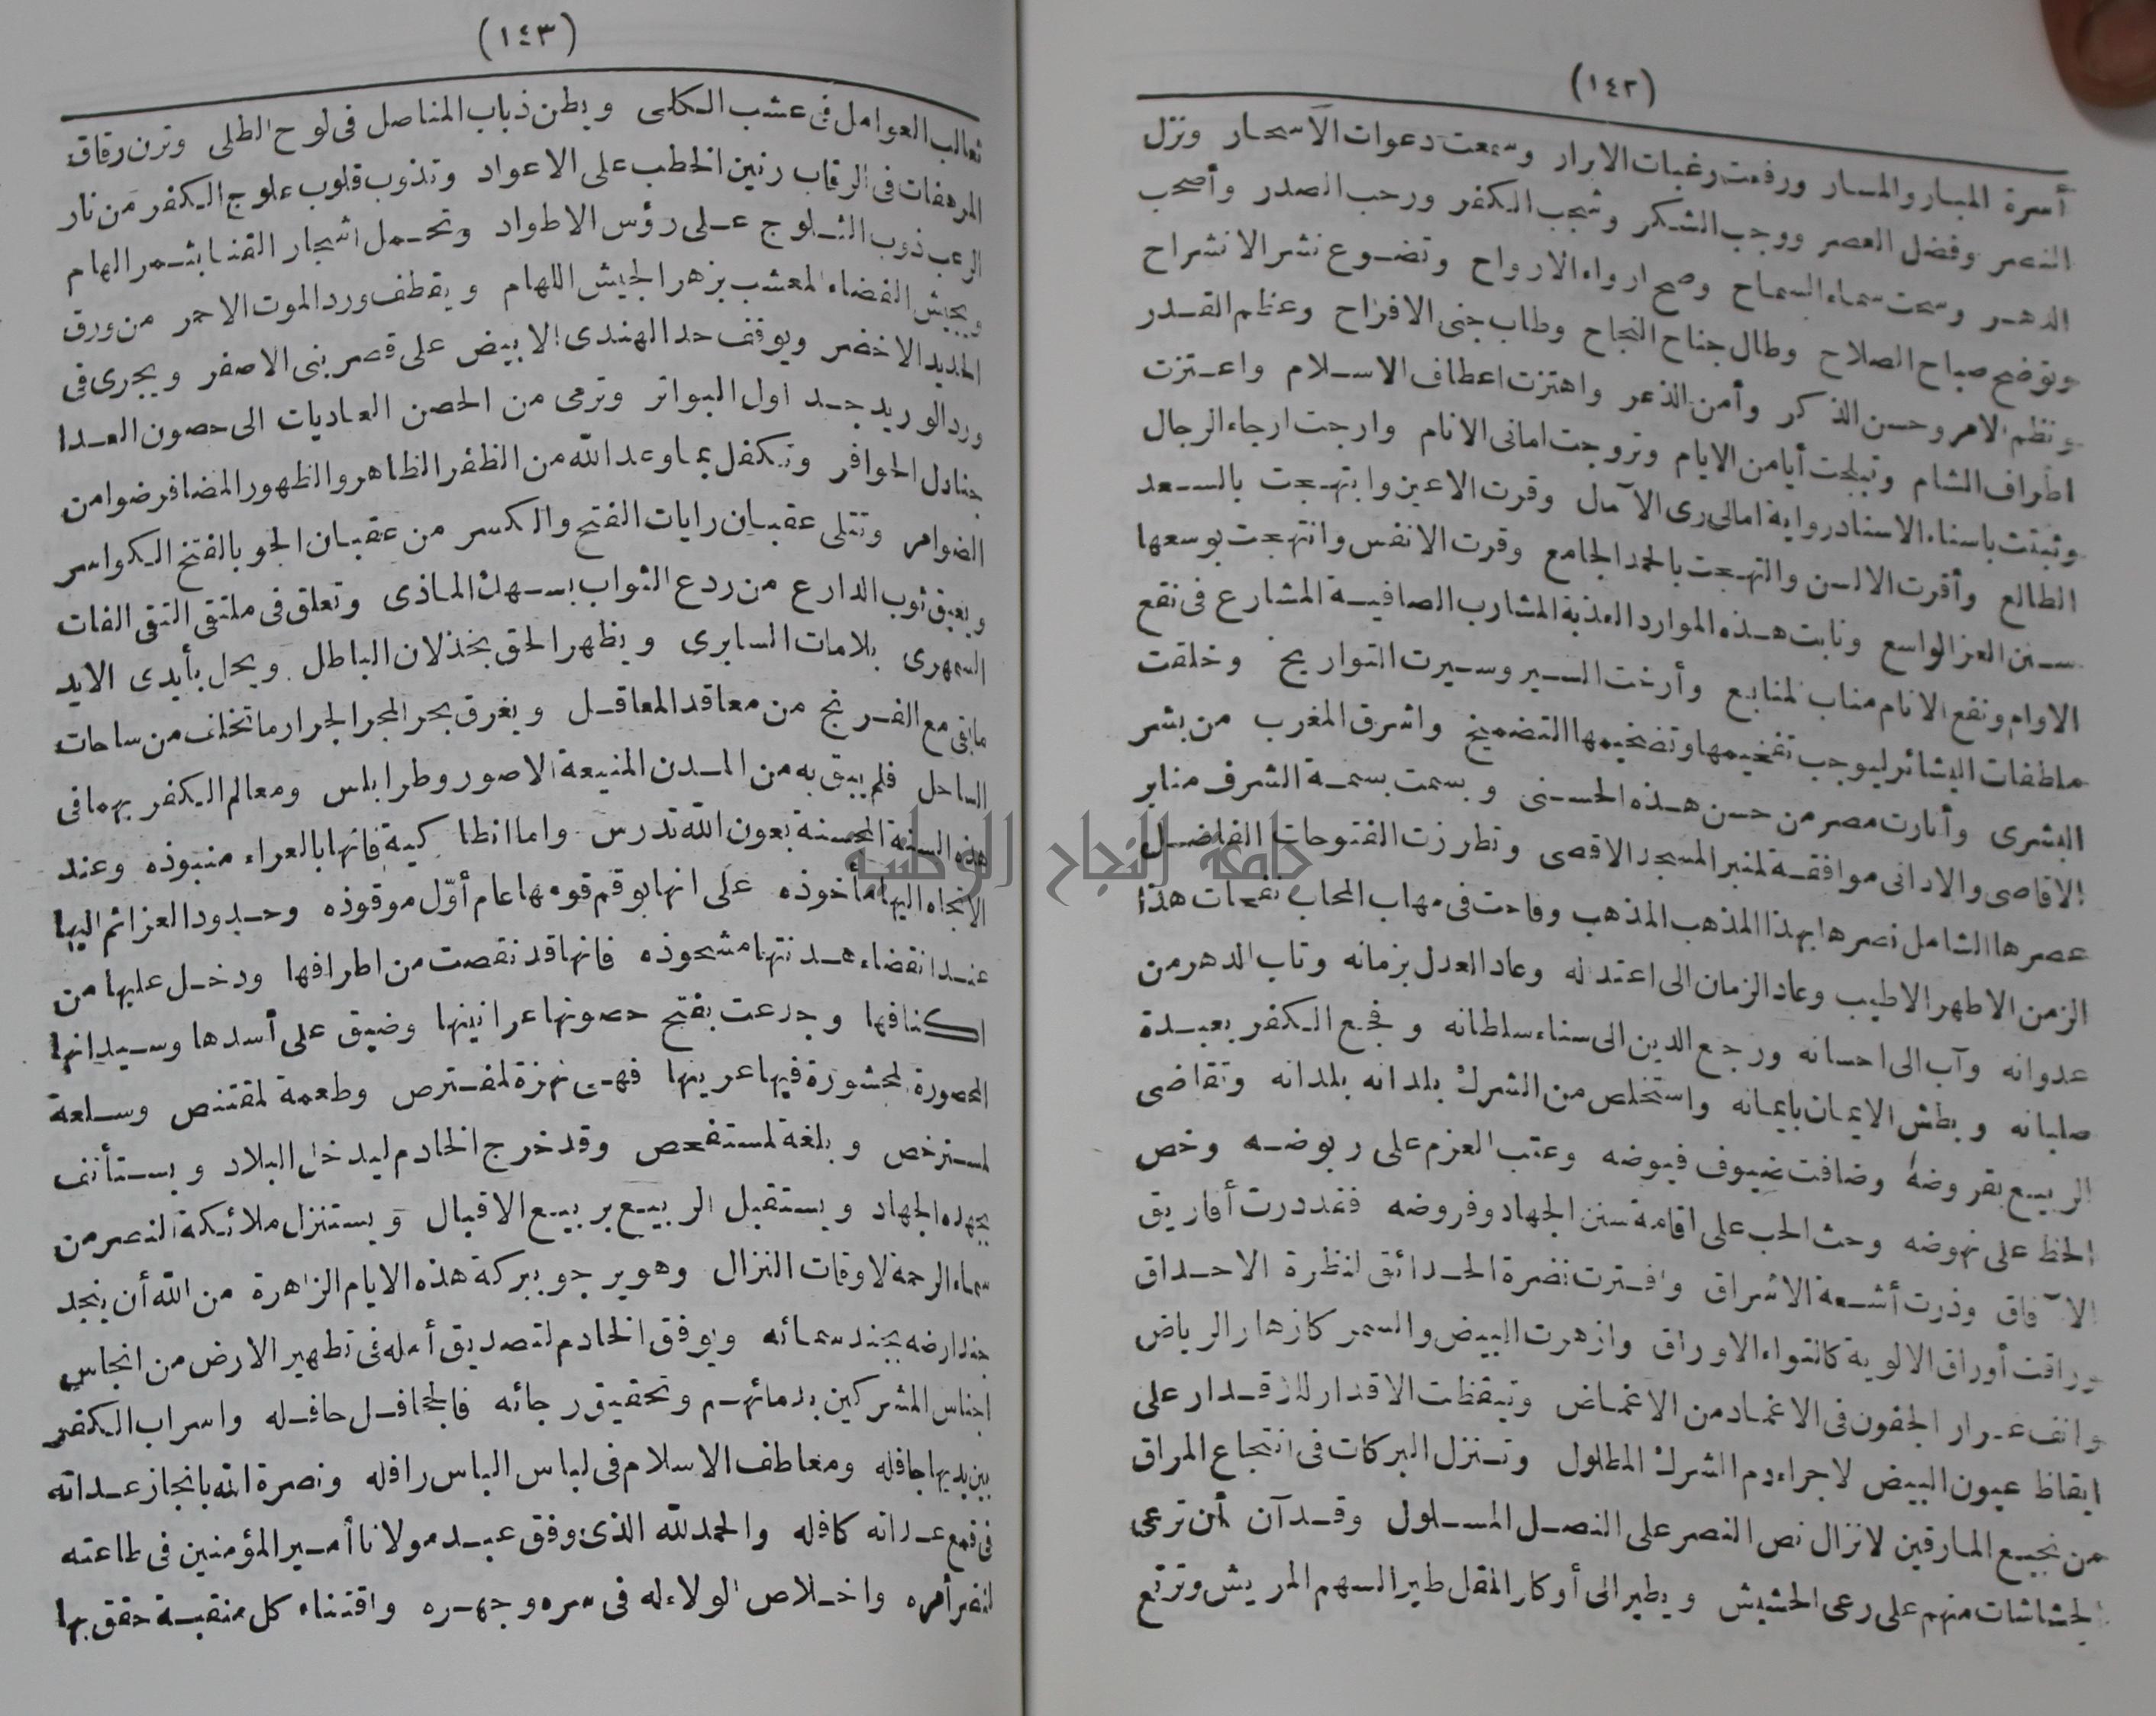 (١٤٢)
أسرة المبار والمسار ورفعت رغبات الابرار وسمعت دعوات الاسحار ونزل
النصر وفضل العصر ووجب الشكر وشجب الكفر ورحب الصدر وأصحب
الدهر وسمت سماء السماح وصح ارواء الارواح وتضوع نشر الانشراح
وتوضح صباح الصلاح وطال جناح النجاح وطاب جنى الافراح وعظم القدر
ونظم الامر وحسن الذكر وأمن الذعر واهتزت اعطاف الاسلام واعتزت
اطراف الشام وتبلجت أيامن الايام وتروجت امانى الانام وارجت ارجاء الرجال
وثبتت باسناء الاسناد رواية امالى رى الآمال وقرت الاعين وابتهجت بالسعد
الطالع وأقرت الالسن والتهجت بالحمد الجامع وقرت الانفس وانتهجت بوسعها
سنن العز الواسع ونابت هذه الموارد العذبة المشارب الصافية المشارع فى نقع
الاوام ونفع الانام مناب المنابع وأرخت السير وسيرت التواريخ وخلقت
ملطفات البشائر ليوجب تفخيمها وتضخيمها التضميخ واشرق المغرب من بشر
البشرى وأنارت مصر من حسن هذه الحسنى وبسمت بسمة الشرف منابر
الاقاصى والادانى موافقة لمنبر المسجد الاقصى وتطرزت الفتوحات الفاضل
عصرها الشامل نصرها بهذا المذهب المذهب وفاحت فى مهاب المحاب نفحات هذا
الزمن الاطهر الاطيب وعاد الزمان الى اعتدله وعاد العدل بزمانه وتاب الدهر من
عدوانه وآب الى احسانه ورجع الدين الى سناء سلطانه وفجع الكفر بعبدة
صلبانه وبطش الايمان بايمانه واستخلص من الشرك بلدانه بلدانه وتقاضى
الربيع بقروضه وضافت ضيوف فيوضه وعتب العزم على ربوضه وخص
الحظ على نهوضه وحث الحب على اقامة سنن الجهاد وفروضه فقد درت أفاريق
الآفاق وذرت أشعة الاشراق وافترت نضرة الحدائق لنظرة الاحداق
وراقت أوراق الالوية كانتواء الاوراق وازهرت البيض والسمر كازهار الرياض
وانف غرار الجفون فى الاغماد من الاغماض وتيقظت الاقدار للاقدار على
ايقاظ عيون البيض لاجراء دم الشرك المطلول وتنزل البركات فى انتجاع المراق
من نجيع المارقين لانزال نص النصر على النصل المسلول وقد آن أن ترعى
الحشاشات منهم على رعى الحشيش ويطير الى أوكار المقل طير السهم المريش وترتع
(١٤٣)
ثعالب العوامل فى عشب الكلى ويطن ذباب المناصل فى لوح الطلى وترن رقاق
المرهفات فى الرقاب رنين الخطب على الاعواد وتذوب قلوب علوج الكفر من نار
الرعب ذوب الثلوج على رؤس الاطواد وتحمل اشجار القنا بثمر الهام
ويجيش الفضاء المعشب بزهر الجيش اللهام ويقطف ورد الموت الاحمر من ورق
الحديد الاخضر ويوقف حد الهندى الابيض على قصر بنى الاصفر ويجرى فى
ورد الوريد جداول البواتر وترمى من الحصن العاديات الى حصون العدا
جنادل الحوافر وتكفل بما وعد الله من الظفر الظاهر والظهور المضافر ضوامن
الضوامر وتتلى عقبان رايات الفتح والكسر من عقبان الجو بالفتخ الكواسر
ويعبق ثوب الدارع من ردع الثواب بسهك الماذى وتعلق فى ملتقى التقى الفات
السمهرى بلامات السابرى ويظهر الحق بخذلان الباطل ويحل بأيدى الايد
ما بقى مع الفرنج من معاقد المعاقل ويغرق بحر المجر الجرار ما تخلف من ساحات
الساحل فلم يبق به من المدن المنيعة الا صور وطرابلس ومعالم الكفر بهما فى
هذه السنة المحسنة بعون الله تدرس واما انطاكية فانها بالعراء منبوذه وعند
الاتجاه اليها مأخوذه على انها بوقم قومها عام أوّل موقوذه وحدود العزائم اليها
عند انقضاء هدنتها مشحوذه فانها قد نقصت من اطرافها ودخل عليها من
اكنافها وجدعت بفتح حصونها عرانينها وضيق على أسدها وسيدانها
المحصورة المحشورة فيها عرينها فهى نهزة لمفترص وطعمة لمقتنص وسلعة
لمسترخص وبلغة لمستفحص وقد خرج الخادم ليدخل البلاد ويستأنف
بجهده الجهاد ويستقبل الربيع بربيع الاقبال ويستنزل ملائكة النصر من
سماء الرحمة لاوقات النزال وهو يرجو ببركة هذه الايام الزاهرة من الله أن ينجد
جند ارضه بجند سمائه ويوفق الخادم لتصديق أمله فى تطهير الارض من انجاس
اجناس المشركين بدمائهم وتحقيق رجائه فالجحافل حافله واسراب الكفر
بين يديها جافله ومعاطف الاسلام فى لباس الباس رافله ونصرة الله بانجاز عداته
فى قمع عداته كافله والحمد لله الذى وفق عبد مولانا أمير المؤمنين فى طاعته
لنفر أمره واخلاص الولاء له فى سره وجهره واقتناء كل منقبة حقق بها
جامعة النجاح الوطنية